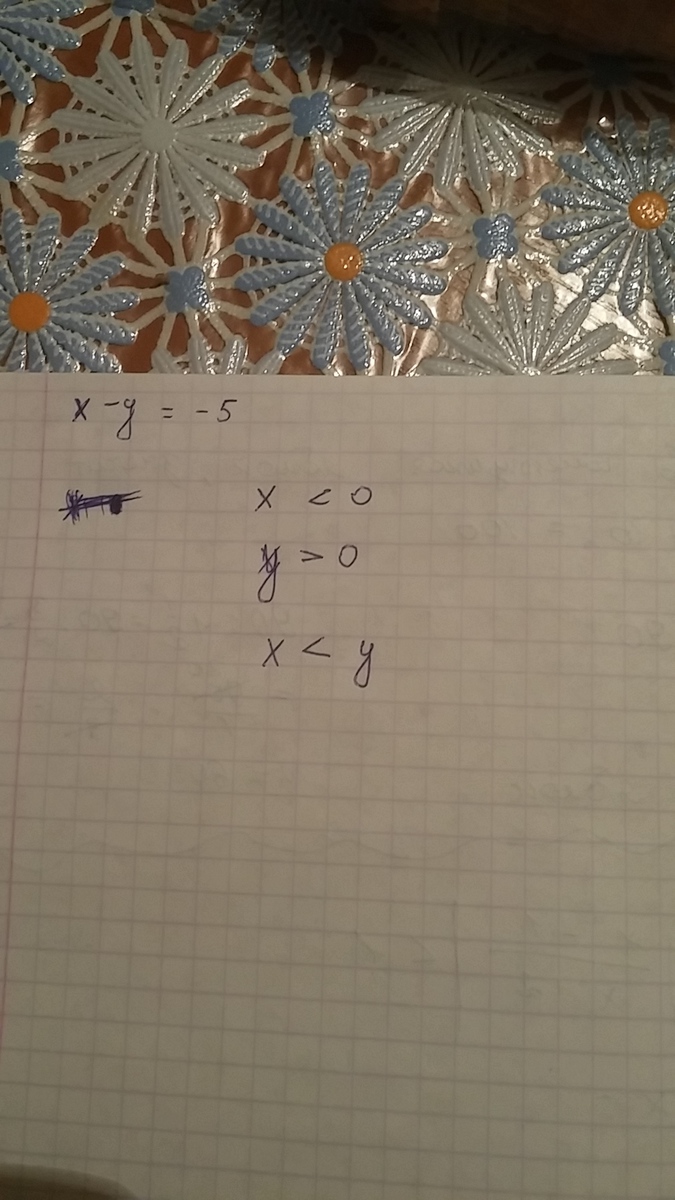 x - y = -5
x < 0
y > 0
x < y